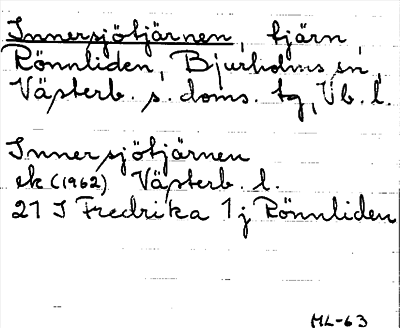 Innersjötjärnen, tjärn,
Rönnliden, Bjurholms sn,
Västerb. s. doms. tg, Vb. l.
Innersjötjärnen
ek (1962) Västerb. l.
21 I Fredrika 1j Rönnliden
ML-63